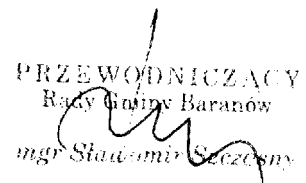 PRZEWODNICZĄCY
Rady Gminy Baranów
mgr Sławomir Szczęsny